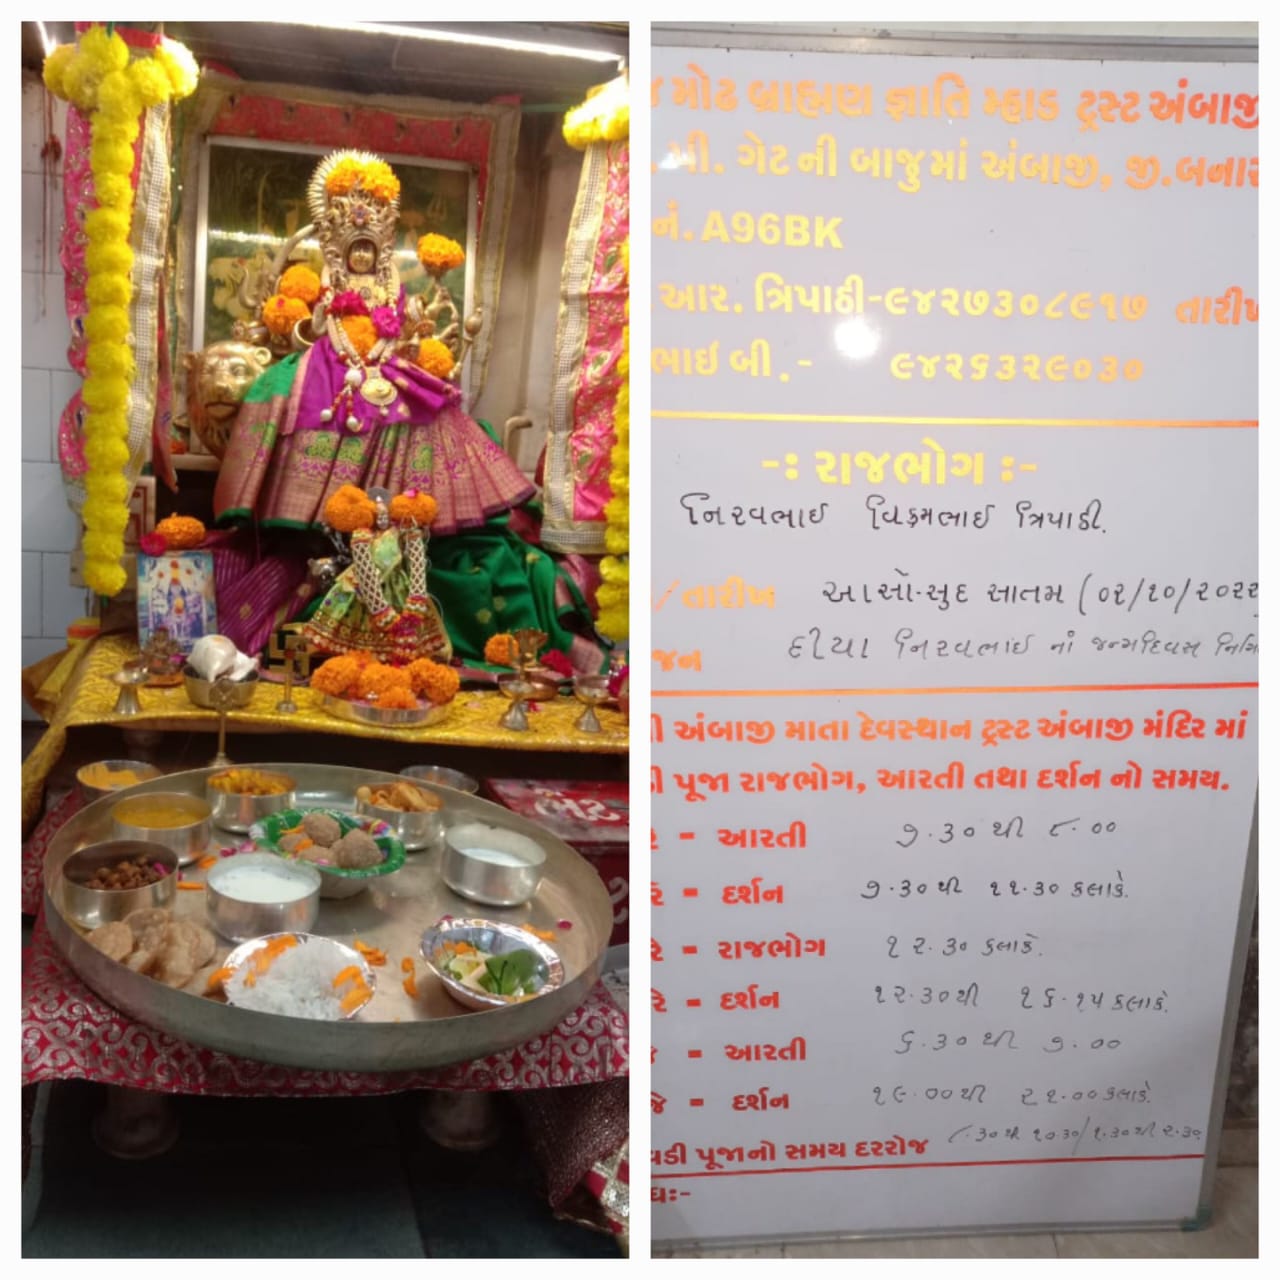 મોઢ બ્રાહ્મણ જ્ઞાતિ મ્હાડ ટ્રસ્ટ અંબાજી
પી. ગેટ ની બાજુમાં અંબાજી, જી.બનાસ
નં. A96BK
આર. ત્રિપાઠી-૯૪૨૭૩૦૮૯૧૭ તારીખ
ભાઈ બી. - ૯૪૨૬૩૨૯૦૩૦
-ઃ રાજભોગ ઃ-
નિરવભાઈ વિક્રમભાઈ ત્રિપાઠી.
/તારીખ આસો-સુદ સાતમ (૦૨/૧૦/૨૦૨૨
જન દીયા નિરવભાઈ નાં જન્મદિવસ
શ્રી અંબાજી માતા દેવસ્થાન ટ્રસ્ટ અંબાજી મંદિર માં
ડી પૂજા રાજભોગ, આરતી તથા દર્શન નો સમય.
રે - આરતી ૭.૩૦ થી ૮.૦૦
રે - દર્શન ૭.૩૦ થી ૧૧.૩૦ કલાકે.
રે - રાજભોગ ૧૨.૩૦ કલાકે.
રે - દર્શન ૧૨.૩૦ થી ૧૬.૧૫ કલાકે.
જે - આરતી ૬.૩૦ થી ૭.૦૦
જે - દર્શન ૧૯.૦૦ થી ૨૧.૦૦ કલાકે.
વડી પૂજાનો સમય દરરોજ ૮.૩૦ થી ૧૦.૩૦/૧.૩૦ થી ૨.૩૦
ધઃ-
ભેટ